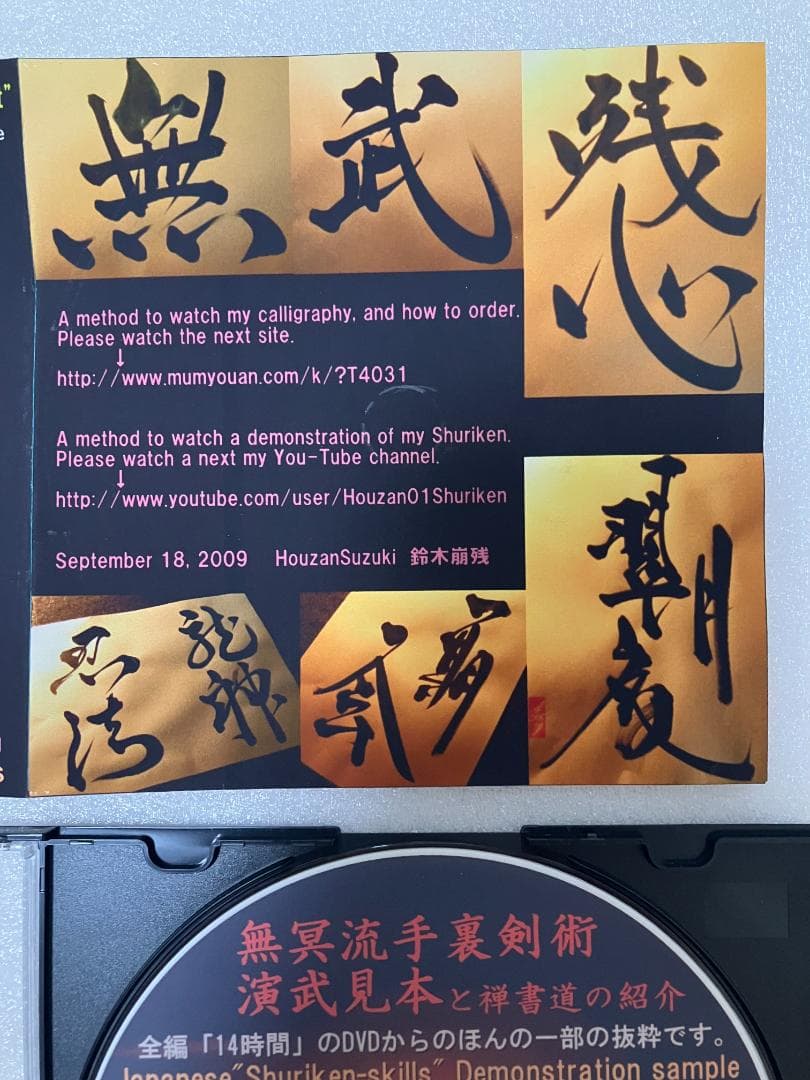 無
武
残心
A method to watch my calligraphy, and how to order.
Please watch the next site.
↓
http://www.mumyouan.com/k/?T4031
A method to watch a demonstration of my Shuriken.
Please watch a next my You-Tube channel.
↓
http://www.youtube.com/user/Houzan01Shuriken
September 18, 2009 HouzanSuzuki 鈴木崩残
忍法
龍神
無冥流手裏剣術
演武見本と禅書道の紹介
全編「14時間」のDVDからのほんの一部の抜粋です。
Japanese"Shuriken-skills" Demonstration sample